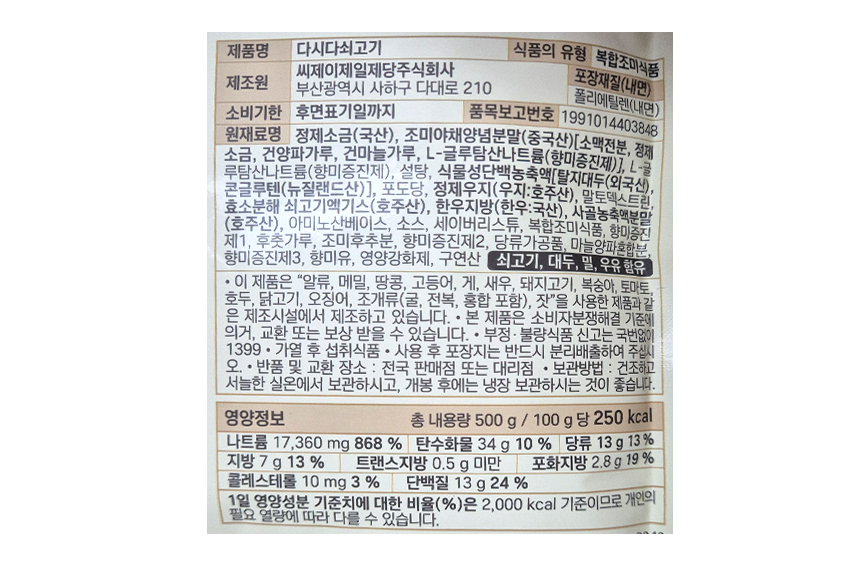 제품명 다시다쇠고기 식품의 유형 복합조미식품
제조원 씨제이제일제당주식회사 부산광역시 사하구 다대로 210 포장재질(내면) 폴리에틸렌(내면)
소비기한 후면표기일까지 품목보고번호 1991014403848
원재료명 정제소금(국산), 조미야채양념분말(중국산)[소맥전분, 정제
소금, 건양파가루, 건마늘가루, L-글루탐산나트륨(향미증진제)], L-글
루탐산나트륨(향미증진제), 설탕, 식물성단백농축액[탈지대두(외국산),
콘글루텐(뉴질랜드산)], 포도당, 정제우지(우지:호주산), 말토덱스트린,
효소분해 쇠고기엑기스(호주산), 한우지방(한우:국산), 사골농축액분말
(호주산), 아미노산베이스, 소스, 세이버리스튜, 복합조미식품, 향미증진
제1, 후춧가루, 조미후추분, 향미증진제2, 당류가공품, 마늘양파혼합분,
향미증진제3, 향미유, 영양강화제, 구연산 쇠고기, 대두, 밀, 우유 함유
• 이 제품은 "알류, 메밀, 땅콩, 고등어, 게, 새우, 돼지고기, 복숭아, 토마토,
호두, 닭고기, 오징어, 조개류(굴, 전복, 홍합 포함), 잣"을 사용한 제품과 같
은 제조시설에서 제조하고 있습니다. • 본 제품은 소비자분쟁해결 기준에
의거, 교환 또는 보상 받을 수 있습니다. • 부정·불량식품 신고는 국번없이
1399 • 가열 후 섭취식품 • 사용 후 포장지는 반드시 분리배출하여 주십시
오. • 반품 및 교환 장소 : 전국 판매점 또는 대리점 • 보관방법 : 건조하고
서늘한 실온에서 보관하시고, 개봉 후에는 냉장 보관하시는 것이 좋습니다.
영양정보 총 내용량 500 g / 100 g 당 250 kcal
나트륨 17,360 mg 868 % 탄수화물 34 g 10 % 당류 13 g 13 %
지방 7 g 13 % 트랜스지방 0.5 g 미만 포화지방 2.8 g 19 %
콜레스테롤 10 mg 3 % 단백질 13 g 24 %
1일 영양성분 기준치에 대한 비율(%)은 2,000 kcal 기준이므로 개인의
필요 열량에 따라 다를 수 있습니다.